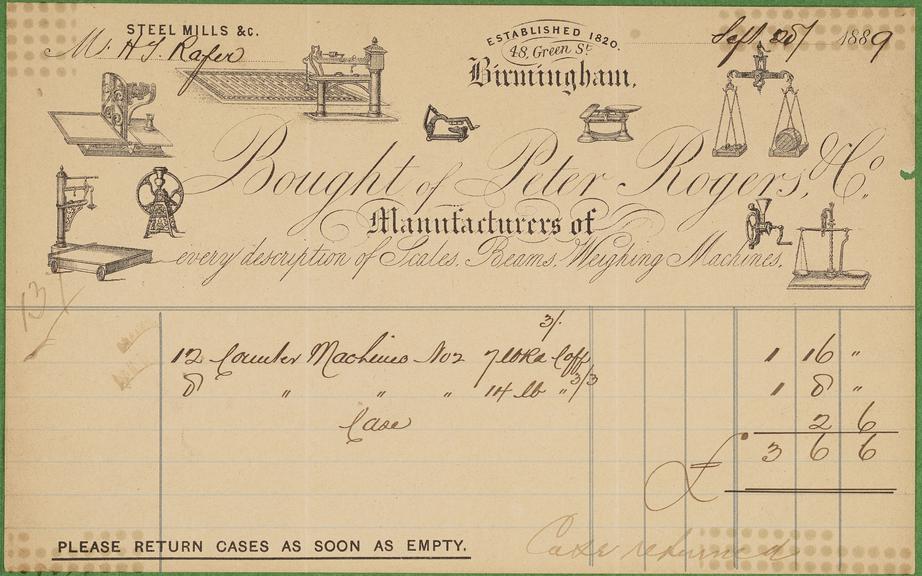 STEEL MILLS &c.
Mr H. J. Rafer
ESTABLISHED 1820.
48, Green St.
Birmingham.
Sept. 20/ 1889
Bought of Peter Rogers, & Co.
Manufacturers of
every description of Scales. Beams. Weighing Machines.
13/
3/.
12 Counter Machines No 2 7 lb
1 16 "
8 " " " 14 lb " 3/3
1 8 "
Case
2 6
£ 3 6 6
PLEASE RETURN CASES AS SOON AS EMPTY.
Case returned